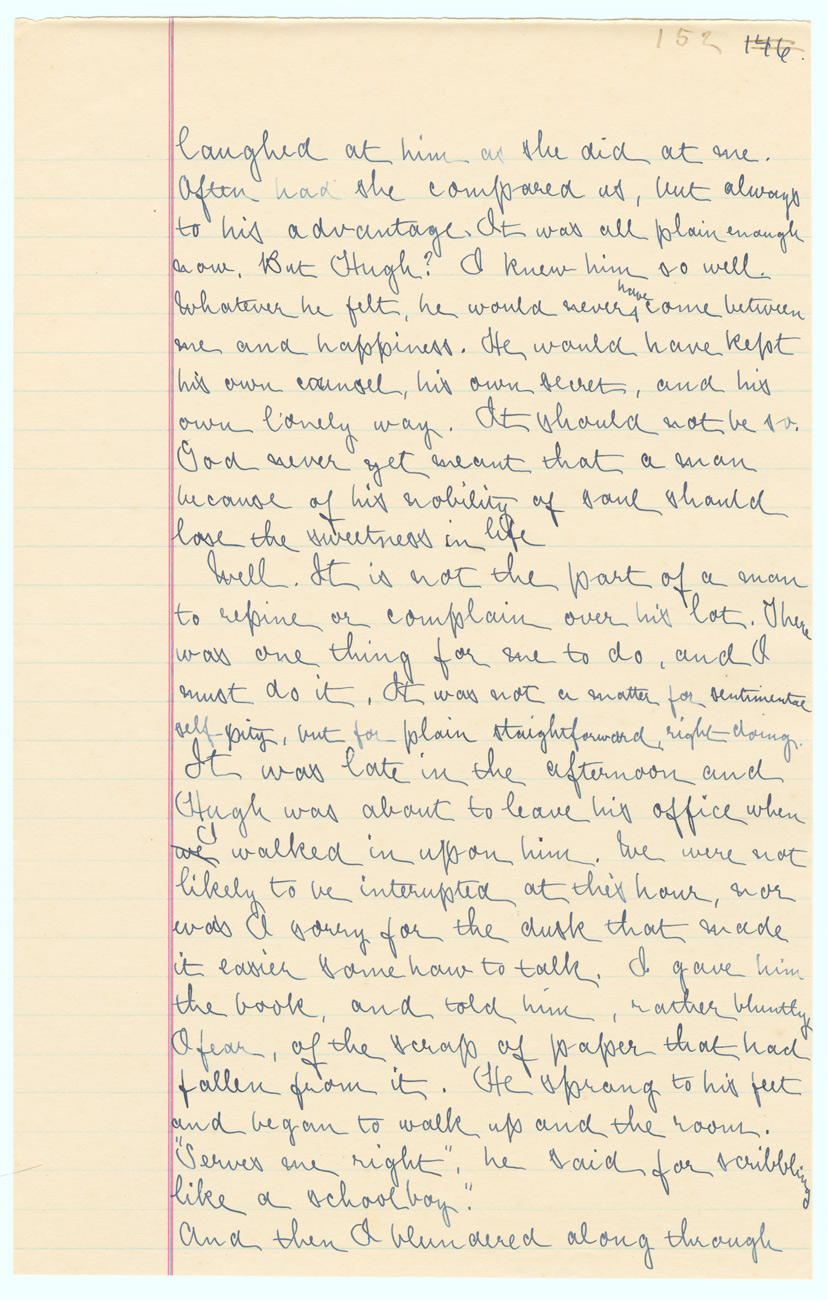 152 146.
laughed at him as she did at me.
Often had she compared us, but always
to his advantage. It was all plain enough
now. But Hugh? I knew him so well.
Whatever he felt, he would never have come between
me and happiness. He would have kept
his own counsel, his own secret, and his
own lonely way. It should not be so.
God never yet meant that a man
because of his nobility of soul should
lose the sweetness in life
Well. It is not the part of a man
to repine or complain over his lot. There
was one thing for me to do, and I
must do it. It was not a matter for sentimental
self-pity, but for plain staightforward, right doing.
It was late in the afternoon and
Hugh was about to leave his office when
we I walked in upon him. We were not
likely to be interupted at this hour, nor
was I sorry for the dusk that made
it easier somehow to talk. I gave him
the book, and told him, rather bluntly
I fear, of the scrap of paper that had
fallen from it. He sprang to his feet
and began to walk up and the room.
"Serves me right", he said for scribbling
like a schoolboy."
And then I blundered along through